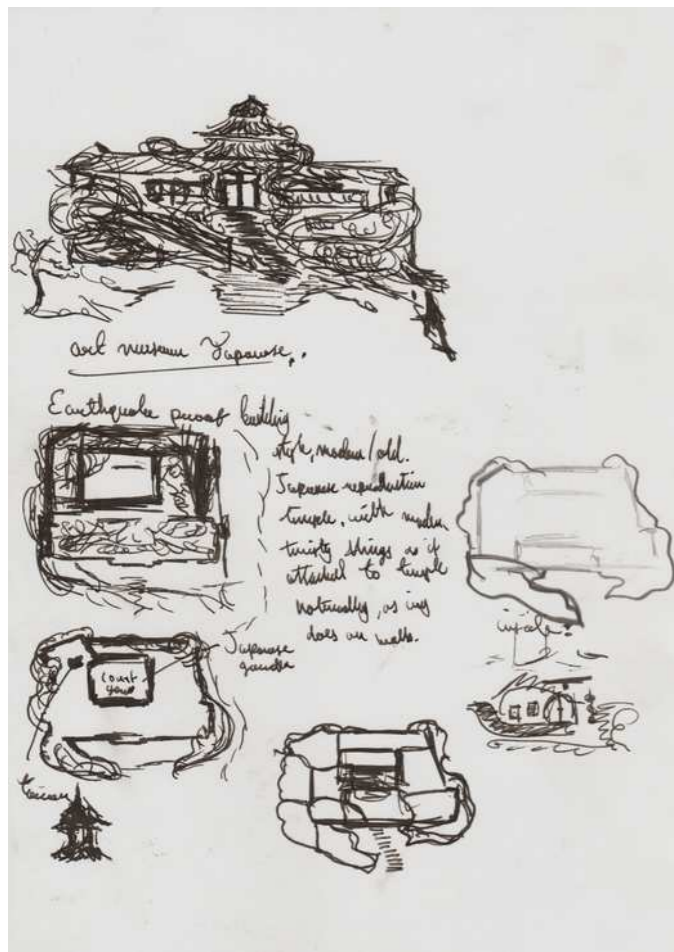 art museum Japanese..
Earthquake proof building
style, modern/old.
Japanese reproduction
temple, with modern
twisty things as if
attached to temple
naturally, as ivy
does on walls.
Japanese
garden
court
yard
inside.